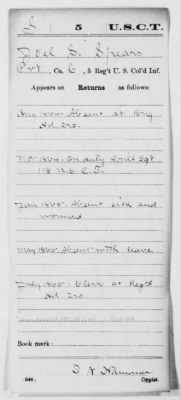 S 5 U.S.C.T.
Joel G. Spears
Pvt, Co. C, 5 Reg't U. S. Col'd Inf.
Appears on
Returns as follows:
Aug 1864 Absent at Brig
Hd Qrs.
Nov 1864 on duty Drill Sgt
118 U.S.C.T.
Jan 1865 Absent sick and
wounded
May 1865 Absent with leave
July 1865 Clerk at Regtl
Hd Qrs
Book mark:
(546)
Copyist.